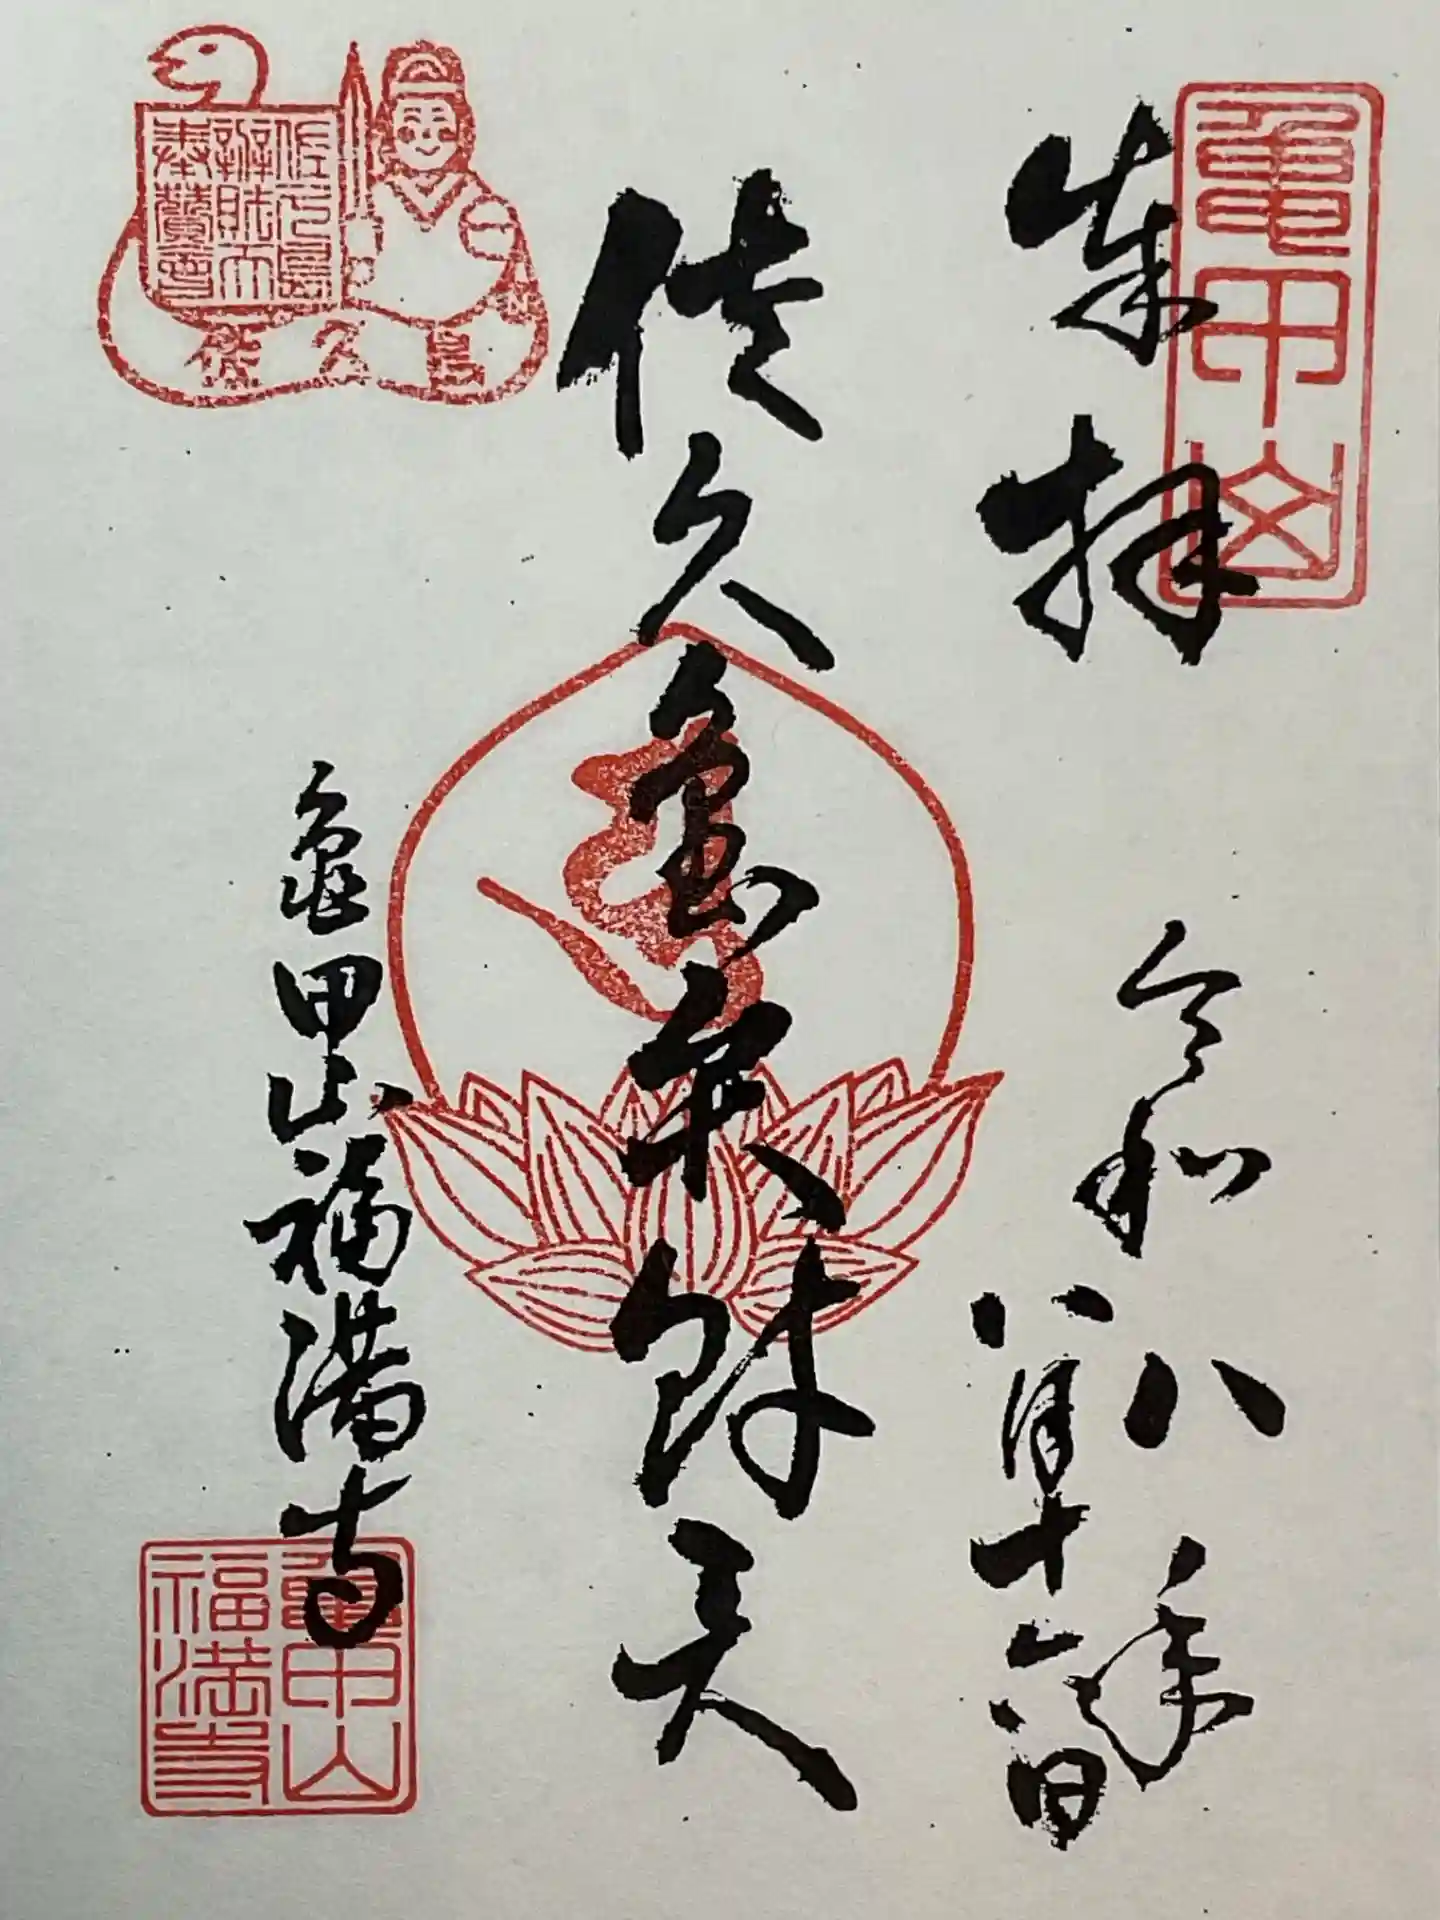 亀甲山
奉拝
令和八年
八月十六日
佐久島弁財天
佐久島
辨財天
奉賛会
佐久島
亀甲山福満寺
亀甲山
福満寺